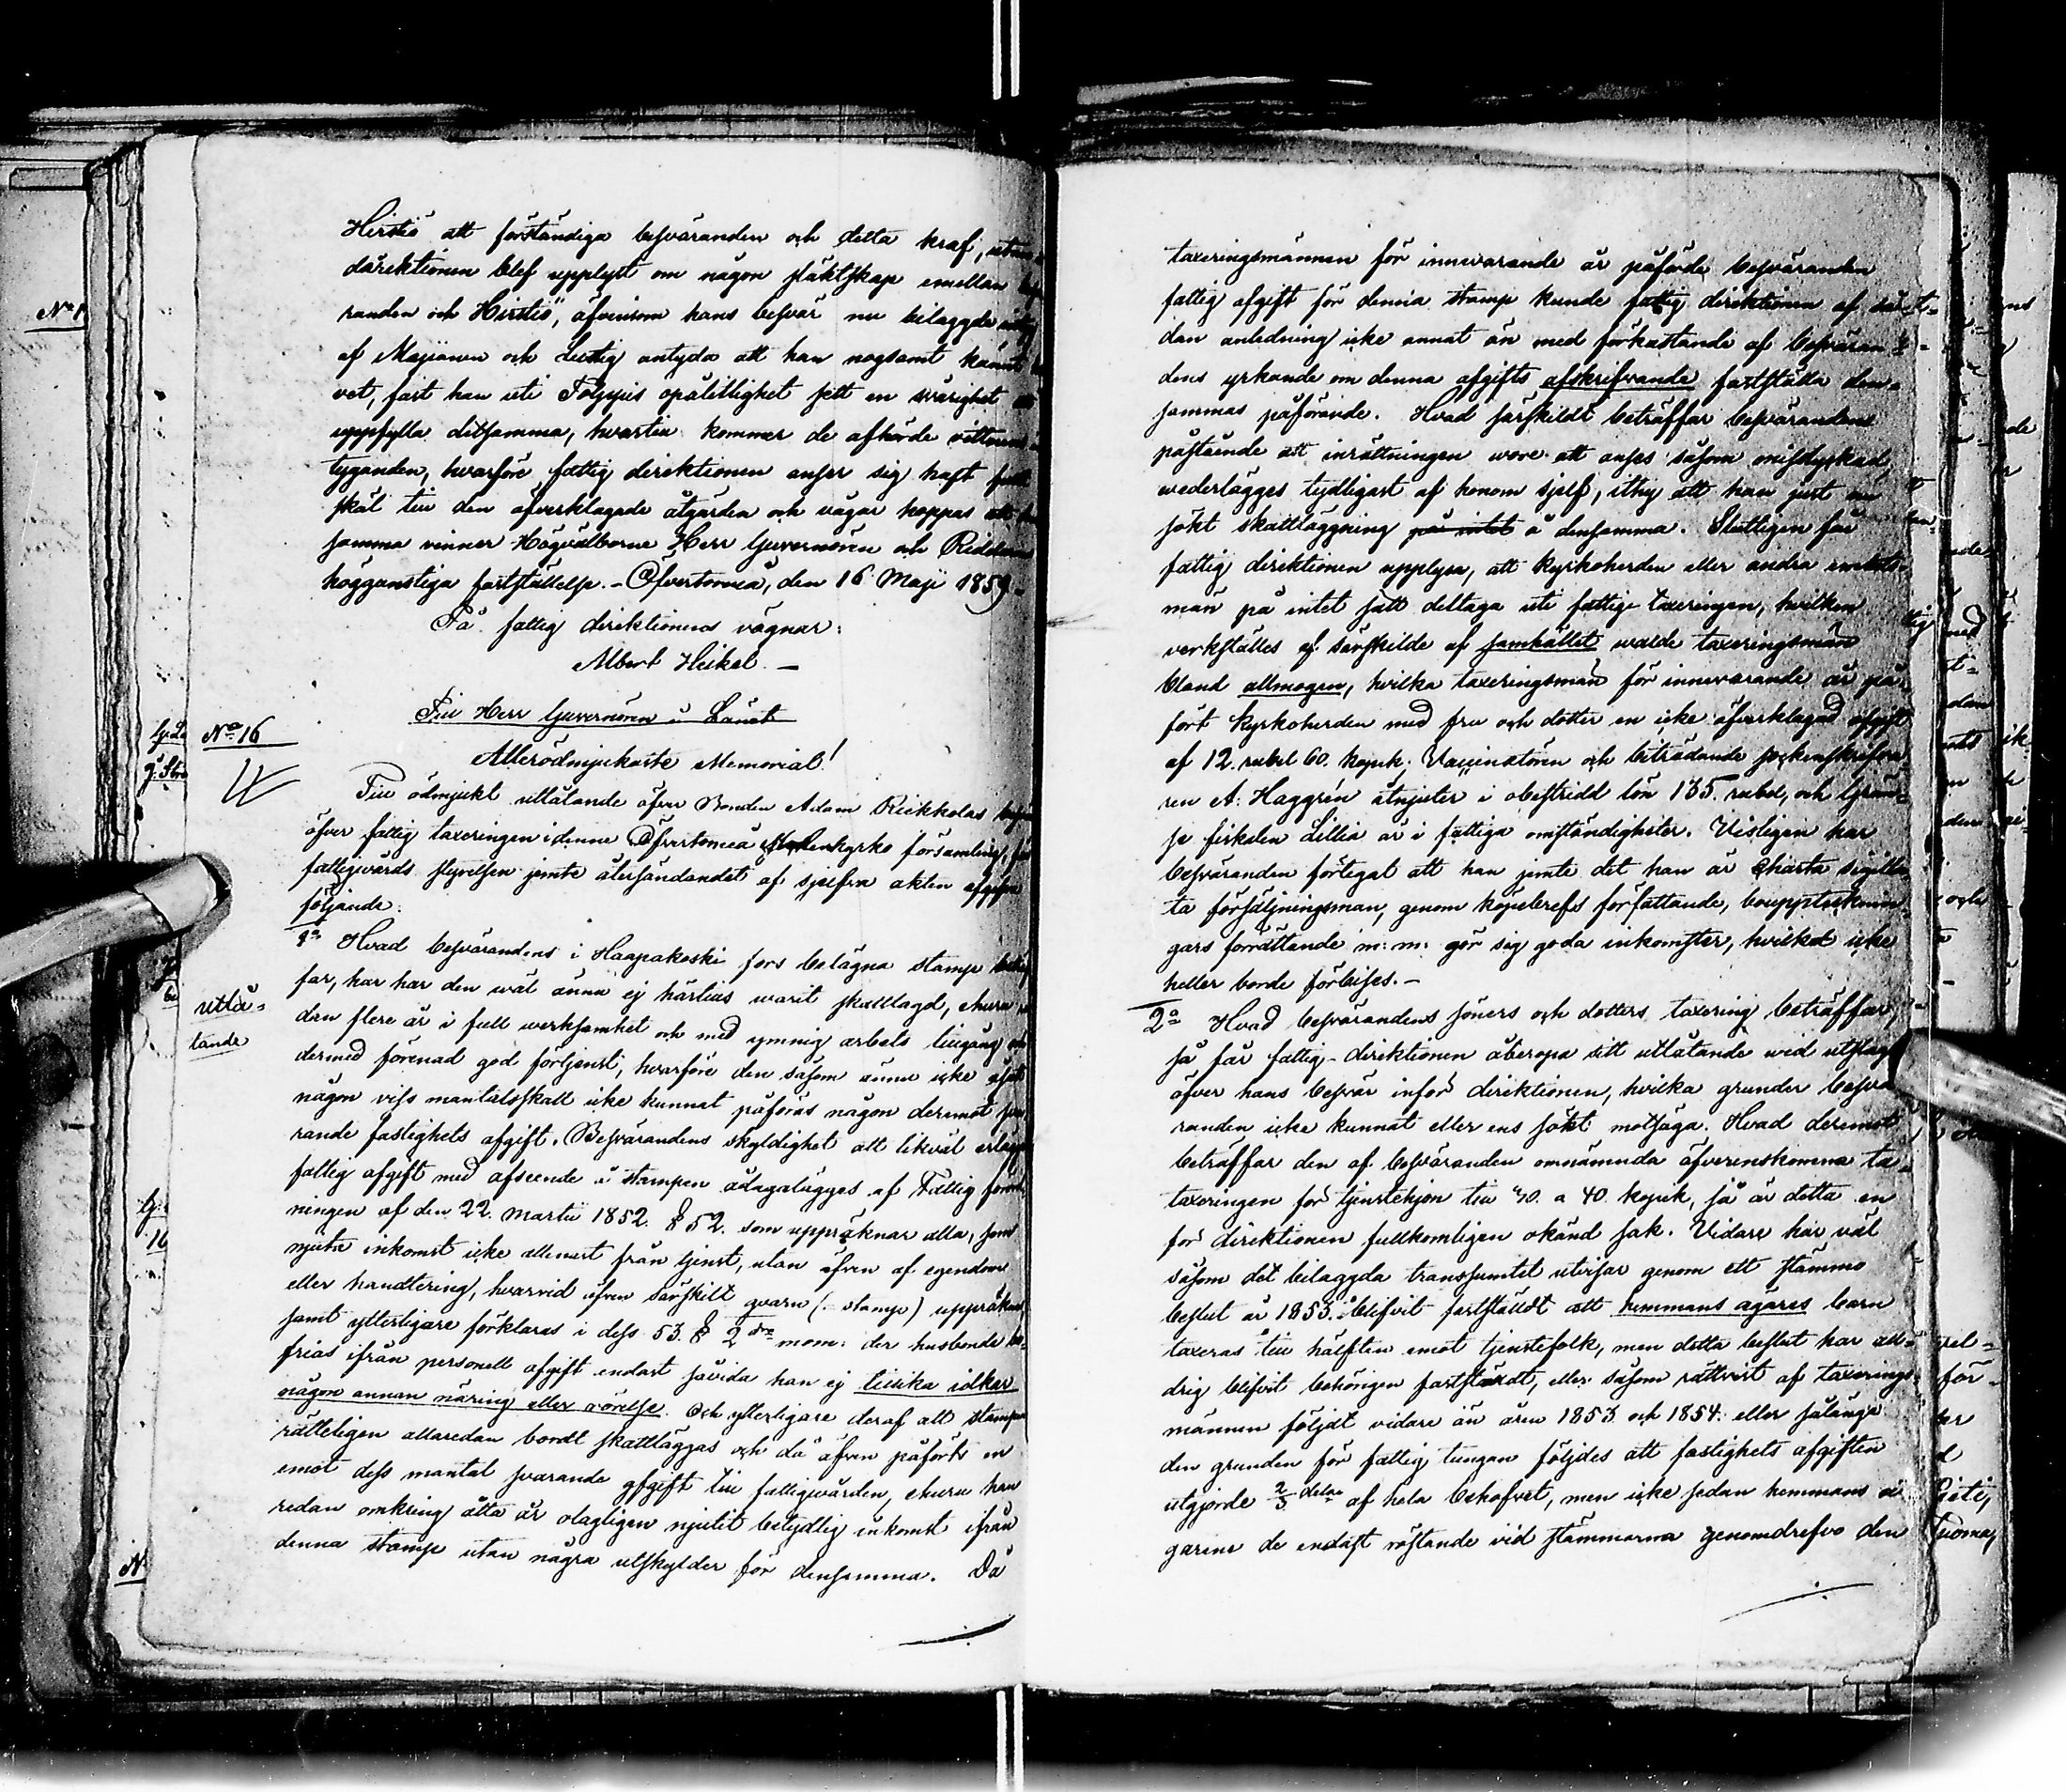 Hirstiö att förständiga besväranden och detta kraf, utan
direktionen blef upplyst om någon släktskap emellan
randen och Hirstiö, äfvensom hans besvär nu bilaggde
af Majianen och Lustig antyda att han nogsamt kännt
vet, fast han uti Tolppis opålitlighet sett en svårighet
uppfylla detsamma, hvartill kommer de afhörde vittnens
tyganden, hvarföre fattig direktionen anser sig haft full
skäl till den öfverklagade åtgärden och vågar hoppas att
samma vinner Högvälborne Herr Guvernören och Riddarens
höggunstiga fastställelse. - Öfvertorneå, den 16 Maji 1859.
På fattig direktionens vägnar:
Albert Heikel. -
No 16
Till Herr Guvernören i Länet
Allerödmjukaste Memorial!
Till ödmjukt utlåtande öfver Bonden Adam Riekkolas
öfver fattig taxeringen i denne Öfvertorneå Moderkyrko församling, får
fattigvårds styrelsen jemte återsändandet af sjelfva akten afgifva
följande:
utlå-
tande
1o Hvad besvärandens i Haapakoski fors belägna stamp
far, har har den wäl ännu ej härtills warit skattlagd, ehuru
dan flere år i full werksamhet och med ymnig arbets tillgång och
dermed förenad god förtjenst, hvarföre den såsom ännu icke
någon viss mantalsskatt icke kunnat påföras någon deremot sva
rande fastighets afgift. Besvärandens skyldighet att likväl erlägga
fattig afgift med afseende å stampen ådagalägges af Fattig förord
ningen af den 22. Martii 1852. § 52. som uppräknar alla, som
njuta inkomst icke allenast från tjenst, utan äfven af egendom
eller handtering, hvarvid äfven särskilt qvarn (: stamp) uppräknas
samt ytterligare förklaras i dess 53. § 2dra mom: der husbonde be-
frias ifrån personell afgift endast såvida han ej tillika idkar
någon annan näring eller rörelse. Och ytterligare deraf att stampen
rätteligen allaredan bordt skattläggas och då äfven påförts en
emot dess mantal svarande afgift till fattigvården, ehuru han
redan omkring åtta år olagligen njutit betydlig inkomst ifrån
denna stamp utan några utskylder för densamma. Då
taxeringsmännen för innevarande år påförde besväranden
fattig afgift för denna stamp kunde fattig direktionen af så-
dan anledning icke annat än med förkastande af besväran-
dens yrkande om denna afgifts afskrifvande fastställa den-
sammas påförande. Hvad särskildt beträffar besvärandens
påstående att inrättningen wore att anses såsom onisdyrkad,
wederlägges tydligast af honom sjelf, ithy att han just nu
sökt skattläggning på intet å densamma. Slutligen får
fattig direktionen upplysa, att Kyrkoherden eller andra embets-
män på intet sätt deltaga uti fattige taxeringen, hvilken
verkställes af särskilde af samhället walde taxeringsmän
bland allmogen, hvilka taxeringsmän för innevarande år på-
fört Kyrkoherden med fru och dotter en icke öfverklagad afgift
af 12. rubel 60. kopek. Vaccinatören och biträdande sockenskrifva-
ren A: Haggrén åtnjuter i obestridt lön 135. rubel, och Grän-
se fiskalen Lillia är i fattiga omständigheter. Visligen har
besväranden förtegat att han jemte det han är Charta sigilla
ta försäljningsman, genom köpebrefs författande, bouppteknin-
gars förrättande m. m. gör sig goda inkomster, hvilket icke
heller borde förbises. -
2o Hvad besvärandens söners och dotters taxering beträffar,
så får fattig-direktionen åberopa sitt utlåtande wid utslag
öfver hans besvär inför direktionen, hvilka grunder besvä
randen icke kunnat eller ens sökt motsäga. Hvad deremot
beträffar den af besväranden omnämnda öfverenskomna ta-
taxeringen för tjenstehjon till 40. a 40. kopek, så är detta en
för direktionen fullkomligen okänd sak. Vidare har väl
såsom det bilaggda transsumtet utvisar genom ett stämmo
beslut år 1853. blifvit fastställdt att hemmans ägares barn
taxeras till hälften emot tjenstefolk, men detta beslut har ald-
drig blifvit behörigen fastställdt, eller såsom rättvist af taxerings-
männen följdt vidare än åren 1853 och 1854. eller sålänge
den grunden för fattig tungan följdes att fastighets afgiften
utgjorde 2/3 delar af hela behofvet, men icke sedan hemmans ä-
garne de endast röstande vid stämmorna genomdrefvo den